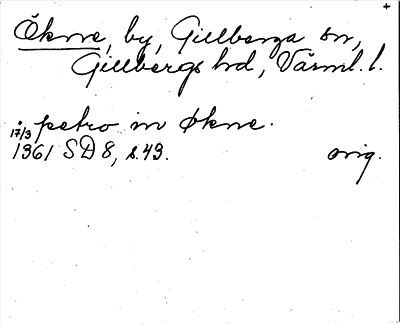 +
Ökne, by, Gillberga sn,
Gillbergs hd, Värml. l.
. petro in Økne.
17/3
1361 SD 8, s. 49. orig.